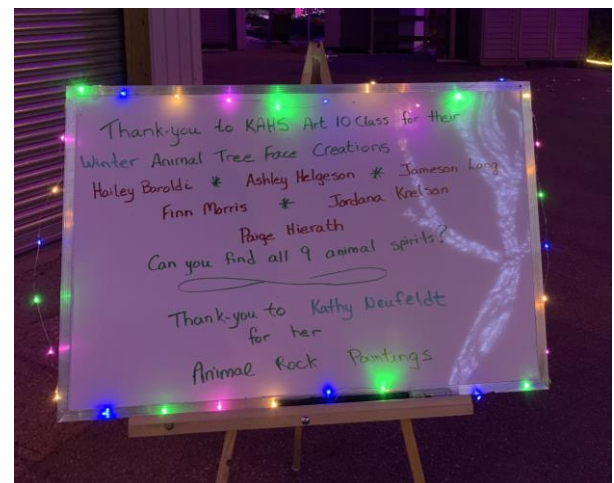 Thank-you to KAHS Art 10 Class for their
Winter Animal Tree Face Creations
Hailey Baroldi * Ashley Helgeson * Jameson Lang
Finn Morris * Jordana Knelson
Paige Hierath
Can you find all 9 animal spirits?
Thank-you to Kathy Neufeldt
for her
Animal Rock Paintings